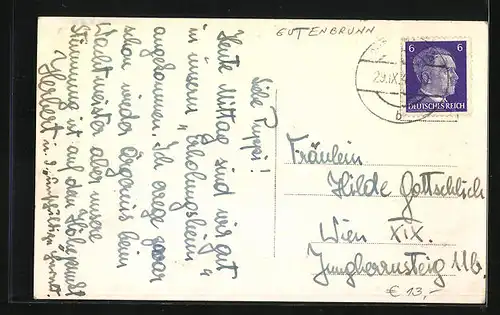 GUTENBRUNN
6 6
DEUTSCHES REICH
29.IX.
b
Liebe Puppi!
Heute Mittag sind wir gut
in unserm „Erholungsheim“
angekommen. Ich errege zwar
schon wieder Ärgernis beim
Wachtmeister aber unsere
Stimmung ist auf dem Höhepunkt
Herbert
Fräulein
Hilde Gottschlich
Wien XIX.
Jungherrnsteig 11b.
€ 13,-